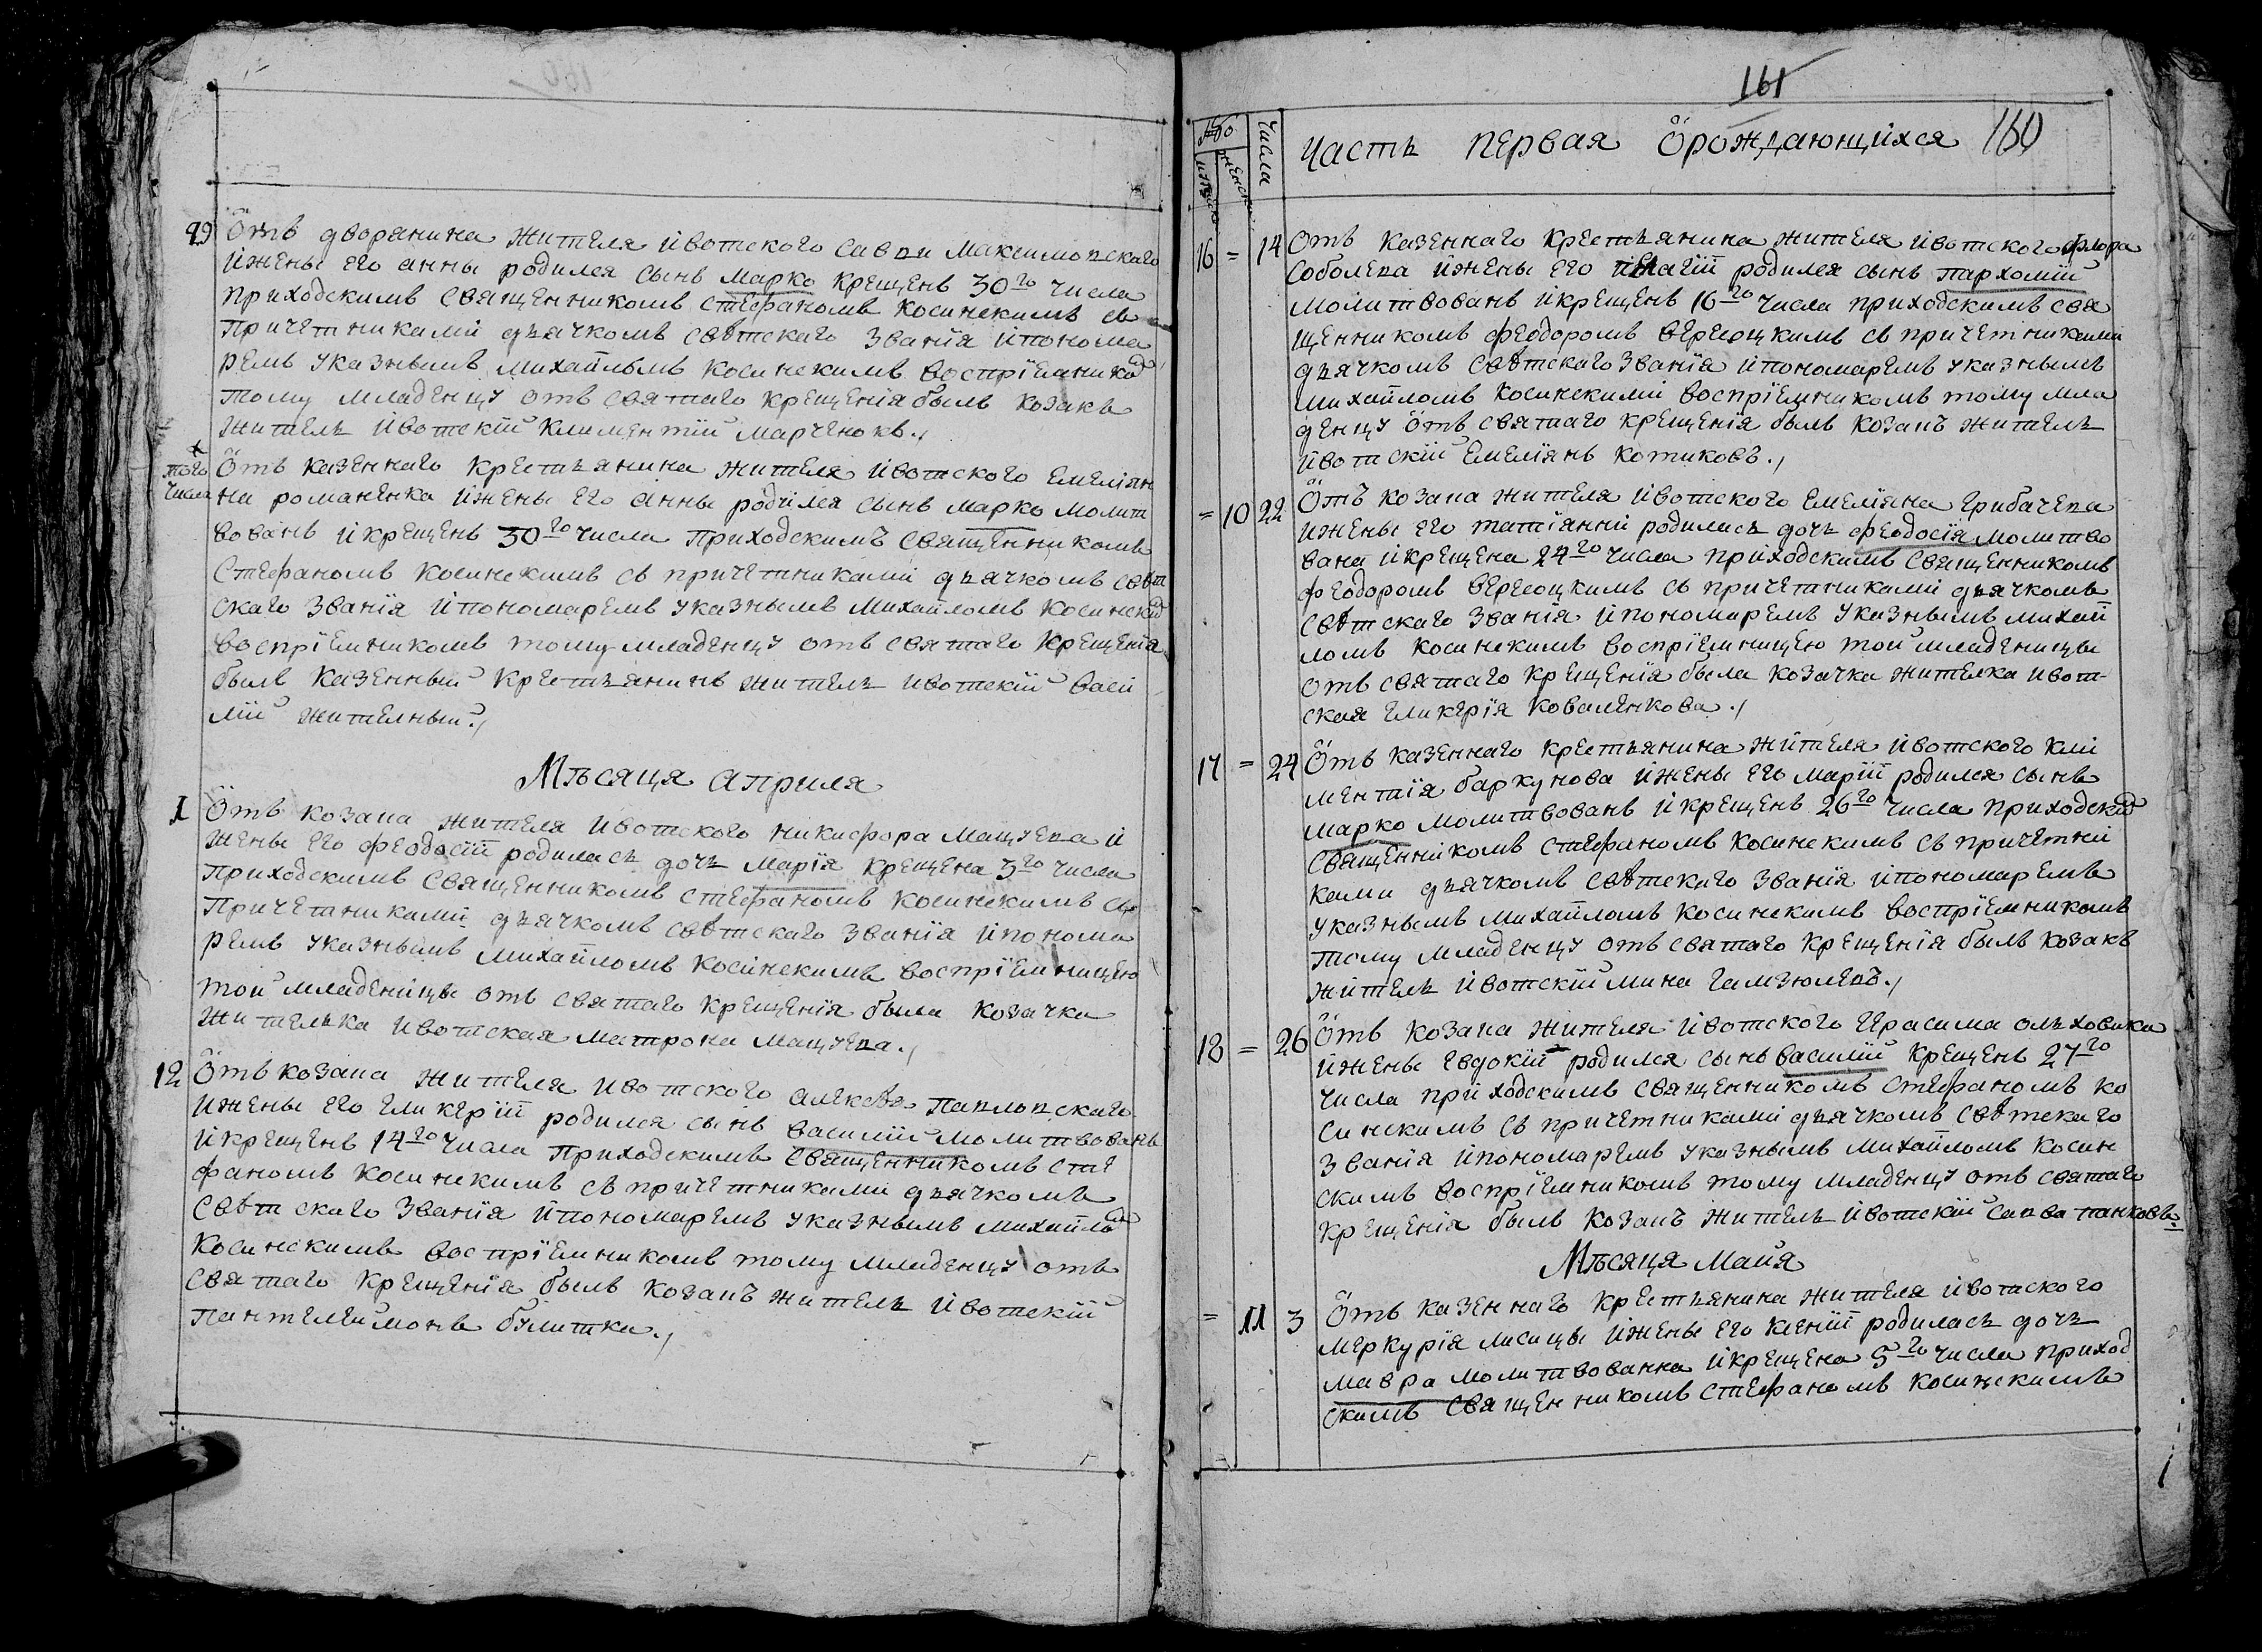 29 Отъ дворянина жителя ивотского саввы максимовскаго
ижены его анны родился сынъ марко крещенъ 30го числа
приходскимъ священникомъ стефаномъ косинскимъ съ
причетниками дьячкомъ свѣтскаго званія ипонома
ремъ указнымъ михайломъ косинскимъ воспріемником
тому младенцу отъ святаго крещенія былъ козакъ
житель ивотскій климентій марченокъ./
того числа Отъ казеннаго крестьянина жителя ивотского емеліян
на романенка ижены его анны родился сынъ марко молит
вованъ икрещенъ 30го числа приходскимъ священникомъ
стефаномъ косинскимъ съ причетниками дьячкомъ свѣт
скаго званія ипономаремъ указнымъ михайломъ косинским
воспріемникомъ тому младенцу отъ святаго крещенія
былъ казенный крестьянинъ житель ивотскій васи
лій жителный./
Мѣсяця априля
1 Отъ козака жителя ивотского никифора мацуева и
жены его феодосіи родилась дочь марія крещена 3го числа
приходскимъ священникомъ стефаномъ косинскимъ съ
причетниками дьячкомъ свѣтскаго званія ипонома
ремъ указнымъ михайломъ косинскимъ воспріемницею
той младеницы отъ святаго крещенія была козачка
жителька ивотская матрона мацуева./
12 Отъ козака жителя ивотского алексѣя павловскаго
ижены его гликеріи родился сынъ василій молитвованъ
икрещенъ 14го числа приходскимъ священникомъ сте
фаномъ косинскимъ съ причетниками дьячкомъ
свѣтскаго званія ипономаремъ указнымъ михайлом
косинскимъ воспріемникомъ тому младенцу отъ
святаго крещенія былъ козакъ житель ивотскій
пантелеймонъ булитка./
161
Число Числа Часть первая Орождающихся 160
мужеск женск
16 = 14 Отъ казеннаго крестьянина жителя ивотского флора
соболева ижены его пелагіи родился сынъ пархомій
молитвованъ икрещенъ 16го числа приходскимъ свя
щенникомъ феодоромъ вересоцкимъ съ причетниками
дьячкомъ свѣтскаго званія ипономаремъ указнымъ
михайломъ косинскимъ воспріемникомъ тому мла
денцу отъ святаго крещенія былъ козакъ житель
ивотскій емеліянъ котиковъ./
= 10 22 Отъ козака жителя ивотского емеліяна грибачева
ижены его татіянны родилась дочь феодосія молитво
вана икрещена 24го числа приходскимъ священникомъ
феодоромъ вересоцкимъ съ причетниками дьячкомъ
свѣтскаго званія ипономаремъ указнымъ михай
ломъ косинскимъ воспріемницею той младеницы
отъ святаго крещенія была козачка жителка ивот-
ская гликерія коваленкова./
17 = 24 Отъ казеннаго крестьянина жителя ивотского кли
ментія баркунова ижены его маріи родился сынъ
марко молитвованъ икрещенъ 26го числа приходским
священникомъ стефаномъ косинскимъ съ причетни
ками дьячкомъ свѣтскаго званія ипономаремъ
указнымъ михайломъ косинскимъ воспріемникомъ
тому младенцу отъ святаго крещенія былъ козакъ
житель ивотскій мина гамзюлевъ./
18 = 26 Отъ козака жителя ивотского герасима ольховика
ижены евдокіи родился сынъ василій крещенъ 27го
числа приходскимъ священникомъ стефаномъ ко
синскимъ съ причетниками дьячкомъ свѣтскаго
званія ипономаремъ указнымъ михайломъ косин
скимъ воспріемникомъ тому младенцу отъ святаго
крещенія былъ козакъ житель ивотскій савва панковъ
Мѣсяця Майя
= 11 3 Отъ казеннаго крестьянина жителя ивотского
меркурія лисицы ижены его ксеніи родилась дочь
мавра молитвованна икрещена 5го числа приход
скимъ священникомъ стефаномъ косинскимъ